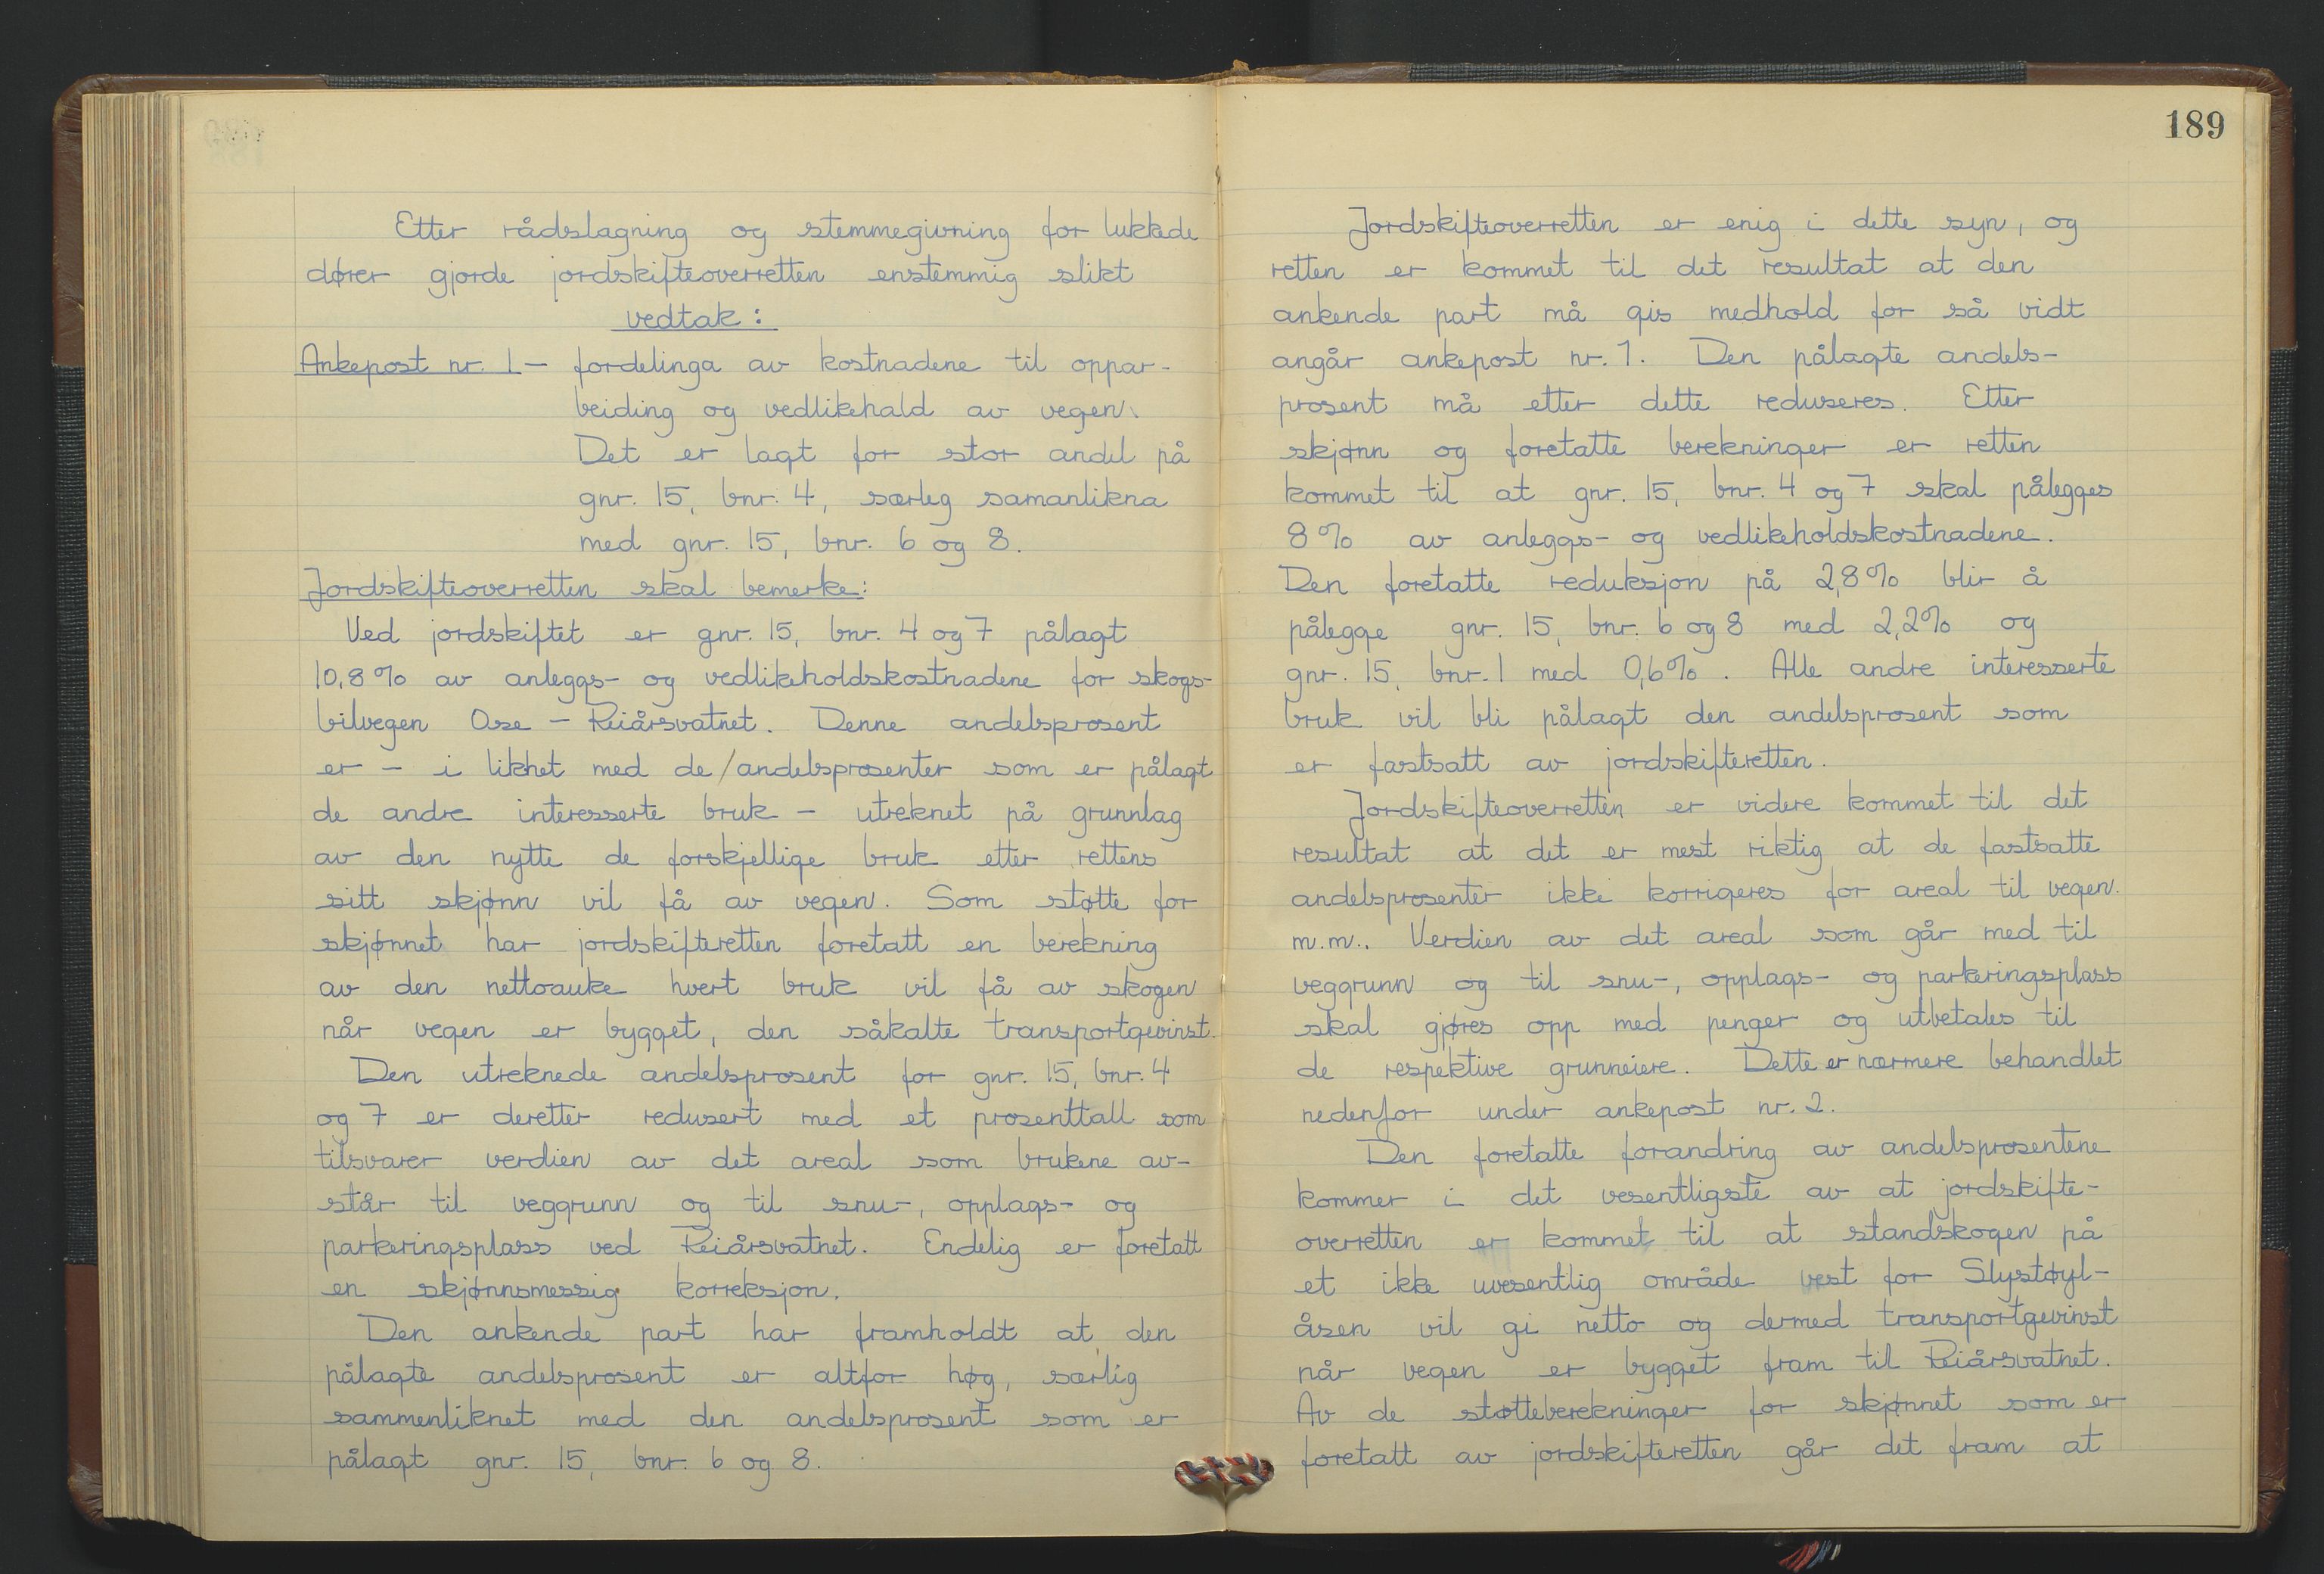 Etter rådslagning og stemmegivning for lukkede
dører gjorde jordskifteoverretten enstemmig slikt
vedtak:
Ankepost nr. 1 – fordelinga av kostnadene til oppar-
beiding og vedlikehald av vegen.
Det er lagt for stor andel på
gnr. 15, bnr. 4, særleg samanlikna
med gnr. 15, bnr. 6 og 8.
Jordskifteoverretten skal bemerke:
Ved jordskiftet er gnr. 15, bnr. 4 og 7 pålagt
10,8% av anleggs- og vedlikeholdskostnadene for skogs-
bilvegen Ose – Reiårsvatnet. Denne andelsprosent
er – i likhet med de/andelsprosenter som er pålagt
de andre interesserte bruk – utreknet på grunnlag
av den nytte de forskjellige bruk etter rettens
sitt skjønn vil få av vegen. Som støtte for
skjønnet har jordskifteretten foretatt en berekning
av den nettoauke hvert bruk vil få av skogen
når vegen er bygget, den såkalte transportgevinst.
Den utreknede andelsprosent for gnr. 15, bnr. 4
og 7 er deretter redusert med et prosenttall som
tilsvarer verdien av det areal som brukene av-
står til veggrunn og til snu-, opplags- og
parkeringsplass ved Reiårsvatnet. Endelig er foretatt
en skjønnsmessig korreksjon.
Den ankende part har framholdt at den
pålagte andelsprosent er altfor høg, særlig
sammenliknet med den andelsprosent som er
pålagt gnr. 15, bnr. 6 og 8.
189
Jordskifteoverretten er enig i dette syn, og
retten er kommet til det resultat at den
ankende part må gis medhold for så vidt
angår ankepost nr. 1. Den pålagte andels-
prosent må etter dette reduseres. Etter
skjønn og foretatte berekninger er retten
kommet til at gnr. 15, bnr. 4 og 7 skal pålegges
8% av anleggs- og vedlikeholdskostnadene.
Den foretatte reduksjon på 2,8% blir å
pålegge gnr. 15, bnr. 6 og 8 med 2,2% og
gnr. 15, bnr. 1 med 0,6%. Alle andre interesserte
bruk vil bli pålagt den andelsprosent som
er fastsatt av jordskifteretten.
Jordskifteoverretten er videre kommet til det
resultat at det er mest riktig at de fastsatte
andelsprosenter ikke korrigeres for areal til vegen.
m.m.. Verdien av det areal som går med til
veggrunn og til snu-, opplags- og parkeringsplass
skal gjøres opp med penger og utbetales til
de respektive grunneiere. Dette er nærmere behandlet
nedenfor under ankepost nr. 2.
Den foretatte forandring av andelsprosentene
kommer i det vesentligste av at jordskifte-
overretten er kommet til at standskogen på
et ikke uvesentlig område vest for Slystøyl-
åsen vil gi netto og dermed transportgevinst
når vegen er bygget fram til Reiårsvatnet.
Av de støtteberekninger for skjønnet som er
foretatt av jordskifteretten går det fram at